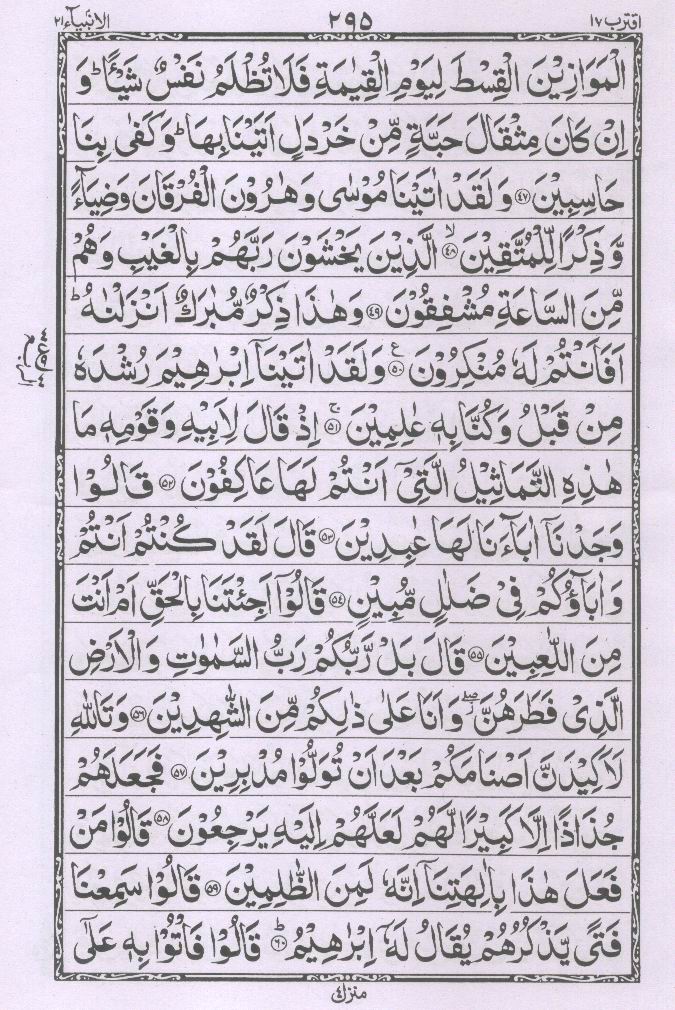 اقترب ١٧ ٢٩٥ الانبيآء ٢١
الْمَوَازِيْنَ الْقِسْطَ لِيَوْمِ الْقِيٰمَةِ فَلَا تُظْلَمُ نَفْسٌ شَيْـًٔا ؕ وَ
اِنْ كَانَ مِثْقَالَ حَبَّةٍ مِّنْ خَرْدَلٍ اَتَيْنَا بِهَا ؕ وَ كَفٰى بِنَا
حَاسِبِيْنَ ﴿٤٧﴾ وَ لَقَدْ اٰتَيْنَا مُوْسٰى وَ هٰرُوْنَ الْفُرْقَانَ وَضِيَآءً
وَّ ذِكْرًا لِّلْمُتَّقِيْنَ ﴿٤٨﴾ ۙ الَّذِيْنَ يَخْشَوْنَ رَبَّهُمْ بِالْغَيْبِ وَهُمْ
مِّنَ السَّاعَةِ مُشْفِقُوْنَ ﴿٤٩﴾ وَهٰذَا ذِكْرٌ مُّبٰرَكٌ اَنْزَلْنٰهُ ؕ
اَفَاَنْتُمْ لَهٗ مُنْكِرُوْنَ ﴿٥٠﴾ ع وَ لَقَدْ اٰتَيْنَآ اِبْرٰهِيْمَ رُشْدَهٗ
مِنْ قَبْلُ وَكُنَّا بِهٖ عٰلِمِيْنَ ﴿٥١﴾ ۚ اِذْ قَالَ لِاَبِيْهِ وَ قَوْمِهٖ مَا
هٰذِهِ التَّمَاثِيْلُ الَّتِيْٓ اَنْتُمْ لَهَا عَاكِفُوْنَ ﴿٥٢﴾ قَالُوْا
وَجَدْنَآ اٰبَآءَنَا لَهَا عٰبِدِيْنَ ﴿٥٣﴾ قَالَ لَقَدْ كُنْتُمْ اَنْتُمْ
وَ اٰبَآؤُكُمْ فِيْ ضَلٰلٍ مُّبِيْنٍ ﴿٥٤﴾ قَالُوْٓا اَجِئْتَنَا بِالْحَقِّ اَمْ اَنْتَ
مِنَ اللّٰعِبِيْنَ ﴿٥٥﴾ قَالَ بَلْ رَّبُّكُمْ رَبُّ السَّمٰوٰتِ وَ الْاَرْضِ
الَّذِيْ فَطَرَهُنَّ ۖ وَ اَنَا عَلٰى ذٰلِكُمْ مِّنَ الشّٰهِدِيْنَ ﴿٥٦﴾ وَ تَاللّٰهِ
لَاَكِيْدَنَّ اَصْنَامَكُمْ بَعْدَ اَنْ تُوَلُّوْا مُدْبِرِيْنَ ﴿٥٧﴾ فَجَعَلَهُمْ
جُذَاذًا اِلَّا كَبِيْرًا لَّهُمْ لَعَلَّهُمْ اِلَيْهِ يَرْجِعُوْنَ ﴿٥٨﴾ قَالُوْا مَنْ
فَعَلَ هٰذَا بِاٰلِهَتِنَآ اِنَّهٗ لَمِنَ الظّٰلِمِيْنَ ﴿٥٩﴾ قَالُوْا سَمِعْنَا
فَتًى يَّذْكُرُهُمْ يُقَالُ لَهٗٓ اِبْرٰهِيْمُ ﴿٦٠﴾ ؕ قَالُوْا فَاْتُوْا بِهٖ عَلٰٓى
منزل ٤